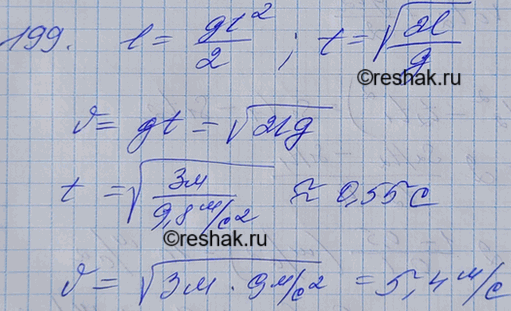 199. l = gt²/2 ; t = √(2l/g)
©reshak.ru
υ = gt = √(2lg)
t = √(3м/9,8м/с²) ≈ 0,55с
©reshak.ru
υ = √(3м · 9м/с²) = 5,4 м/с